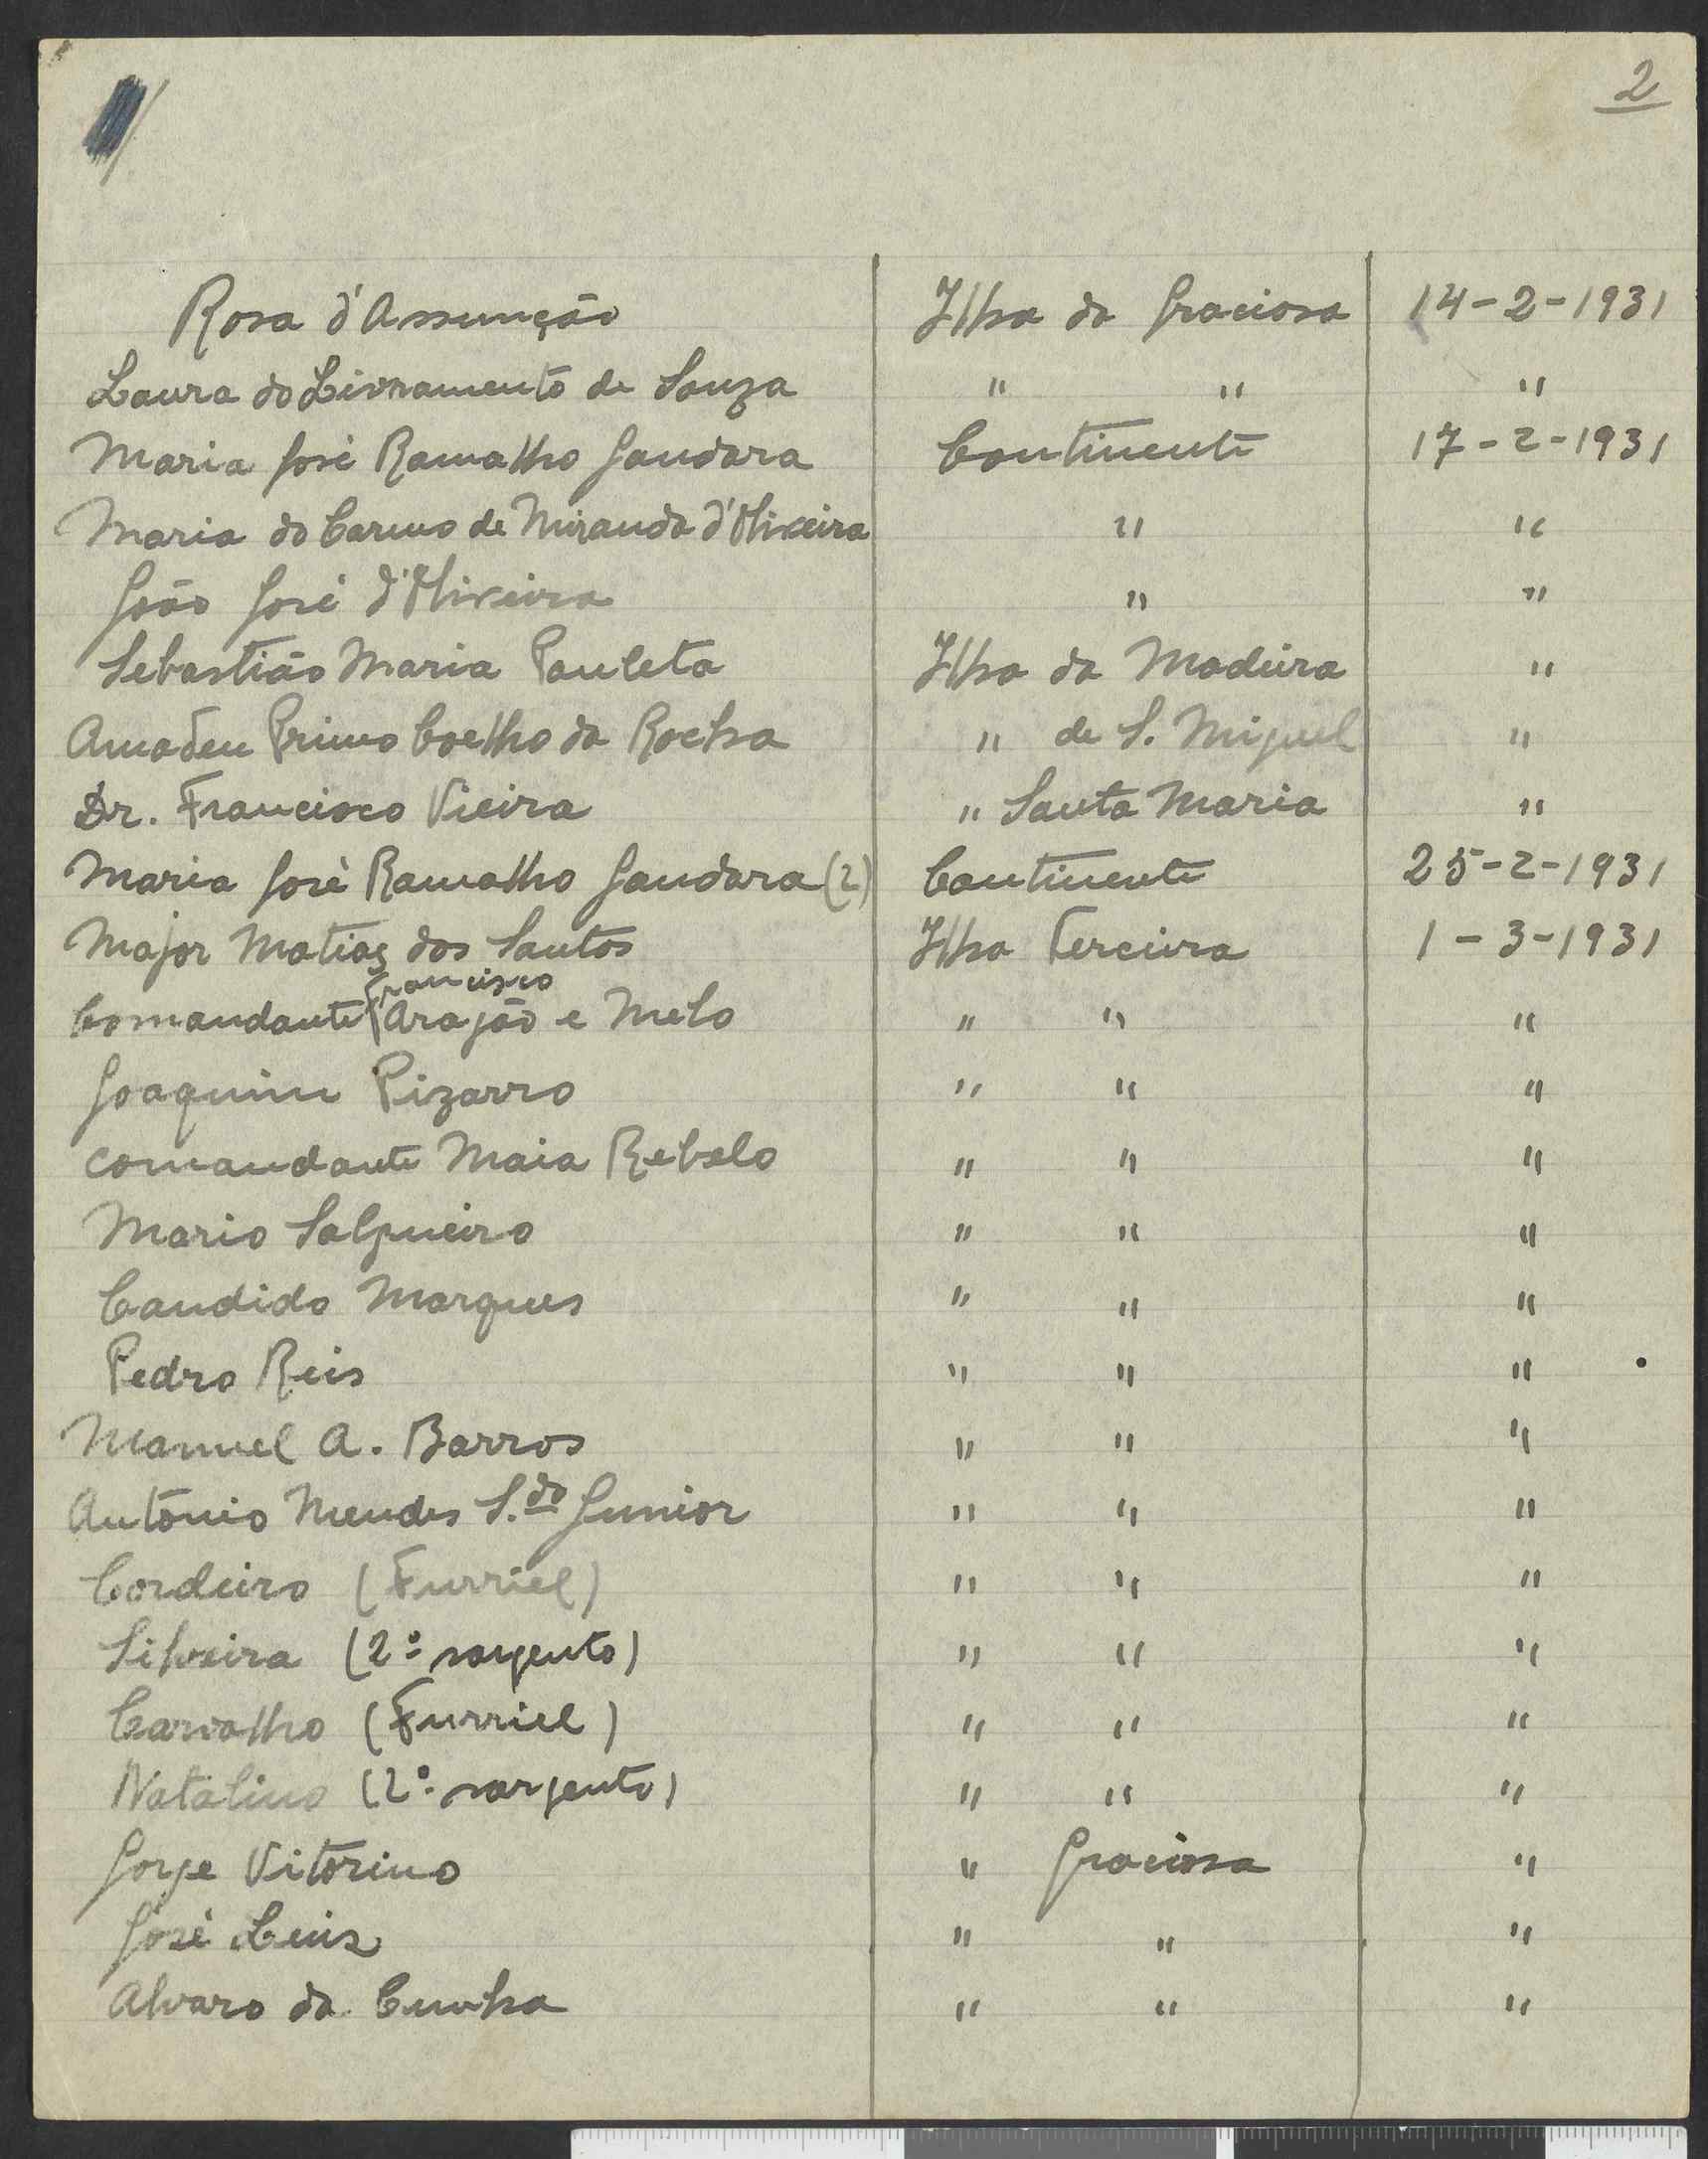 2
Rosa d'Assunção Ilha da Graciosa 14-2-1931
Laura do Livramento de Souza " " "
Maria José Ramalho Gandara Continente 17-2-1931
Maria do Carmo de Miranda d'Oliveira " "
João José d'Oliveira " "
Sebastião Maria Pauleta Ilha da Madeira "
Amadeu Primo Coelho da Rocha " de S. Miguel "
Dr. Francisco Vieira " Santa Maria "
Maria José Ramalho Gandara (2) Continente 25-2-1931
Major Matias dos Santos Ilha Terceira 1-3-1931
Francisco
Comandante Arajão e Melo " " "
Joaquim Pizarro " " "
Comandante Maia Rebelo " " "
Mario Salgueiro " " "
Candido Marques " " "
Pedro Reis " " "
Manuel A. Barros " " "
António Mendes S.do Junior " " "
Cordeiro (Furriel) " " "
Silveira (2º sargento) " " "
Carvalho (Furriel) " " "
Natalino (2º sargento) " " "
Jorge Vitorino " Graciosa "
José Luis " " "
Alvaro da Cunha " " "